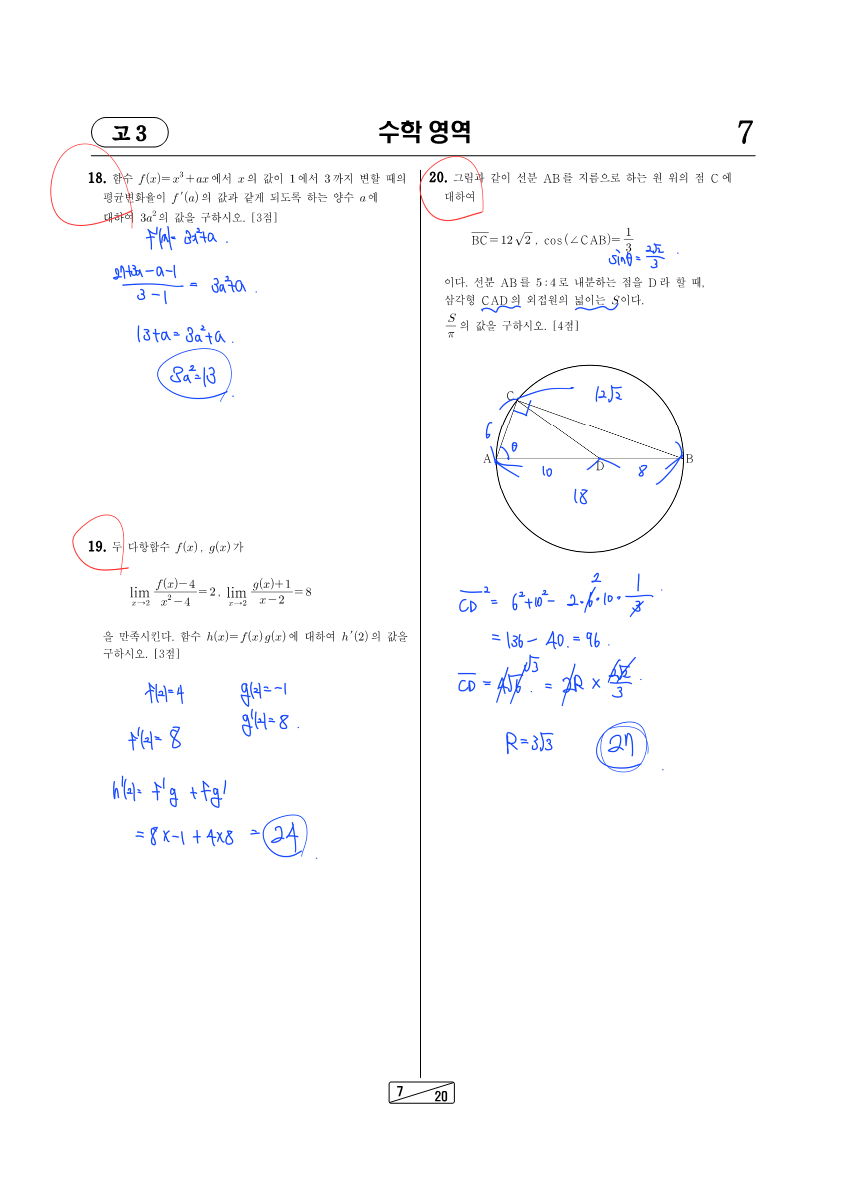 고 3
수학 영역
7
18. 함수 f(x)=x³+ax에서 x의 값이 1에서 3까지 변할 때의
평균변화율이 f′(a)의 값과 같게 되도록 하는 양수 a에
대하여 3a²의 값을 구하시오. [3점]
f'(a)= 3a²+a .
(27+3a-a-1)/(3-1) = 3a²+a .
13+a=3a²+a .
3a²=13 .
19. 두 다항함수 f(x), g(x)가
lim_{x→2} (f(x)-4)/(x²-4)=2, lim_{x→2} (g(x)+1)/(x-2)=8
을 만족시킨다. 함수 h(x)=f(x)g(x)에 대하여 h′(2)의 값을
구하시오. [3점]
f(2)=4 g(2)=-1
f'(2)= 8 g'(2)=8 .
h'(2)= f'g +fg'
=8×-1+4×8 = 24 .
20. 그림과 같이 선분 AB를 지름으로 하는 원 위의 점 C에
대하여
BC=12√2, cos(∠CAB)=1/3
sinθ= 2√2/3 .
이다. 선분 AB를 5 : 4로 내분하는 점을 D라 할 때,
삼각형 CAD의 외접원의 넓이는 S이다.
S/π의 값을 구하시오. [4점]
C 12√2
6
θ
A D B
10 8
18
CD² = 6²+10²- 2·6·10·1/3 . 2
=136- 40 .=96 .
CD = 4√6 . = 2R × 2√2/3 . √3
R=3√3 27 .
7
20